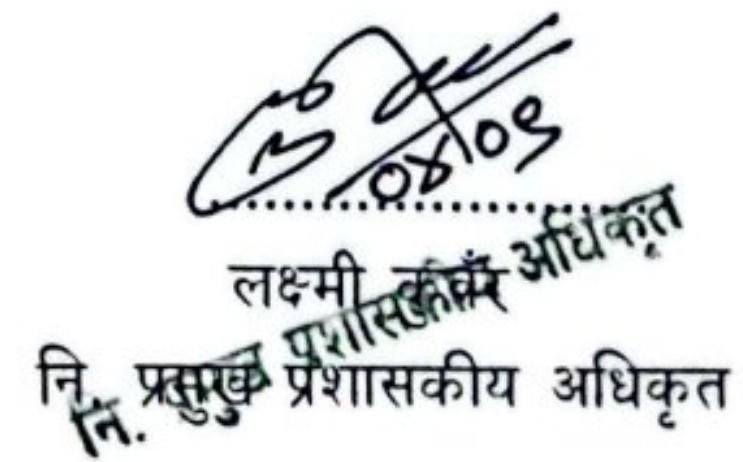 ०४।०९
लक्ष्मी कुवँर
नि. प्रमुख प्रशासकीय अधिकृत
नि. प्रमुख प्रशासकीय अधिकृत